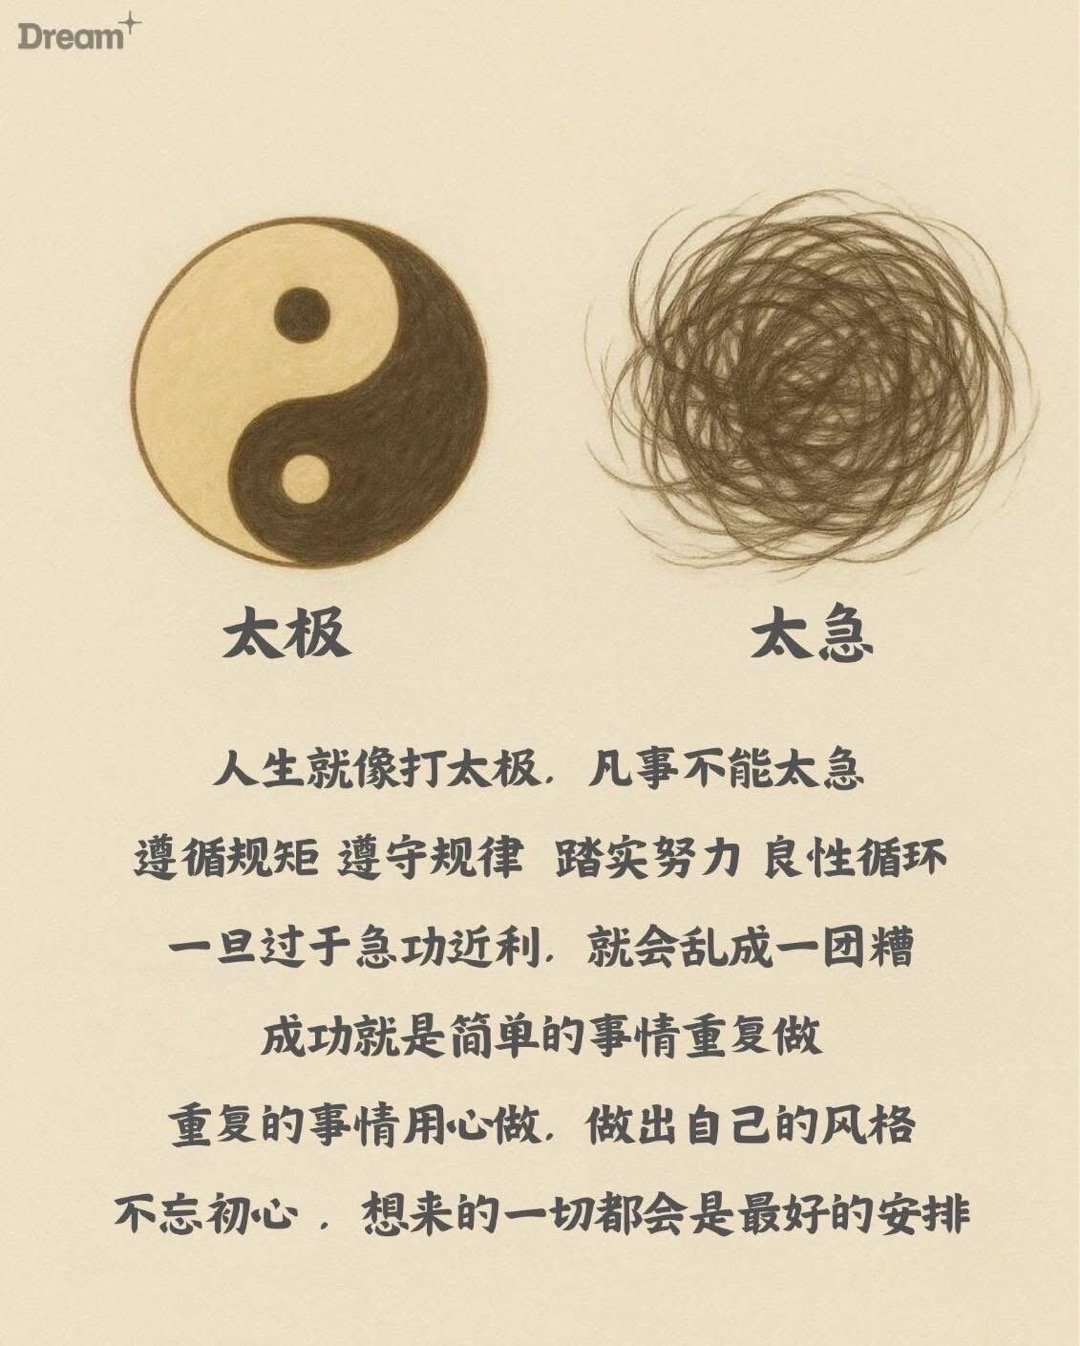 Dream
太极
太急
人生就像打太极，凡事不能太急
遵循规矩 遵守规律 踏实努力 良性循环
一旦过于急功近利，就会乱成一团糟
成功就是简单的事情重复做
重复的事情用心做，做出自己的风格
不忘初心，想来的一切都会是最好的安排